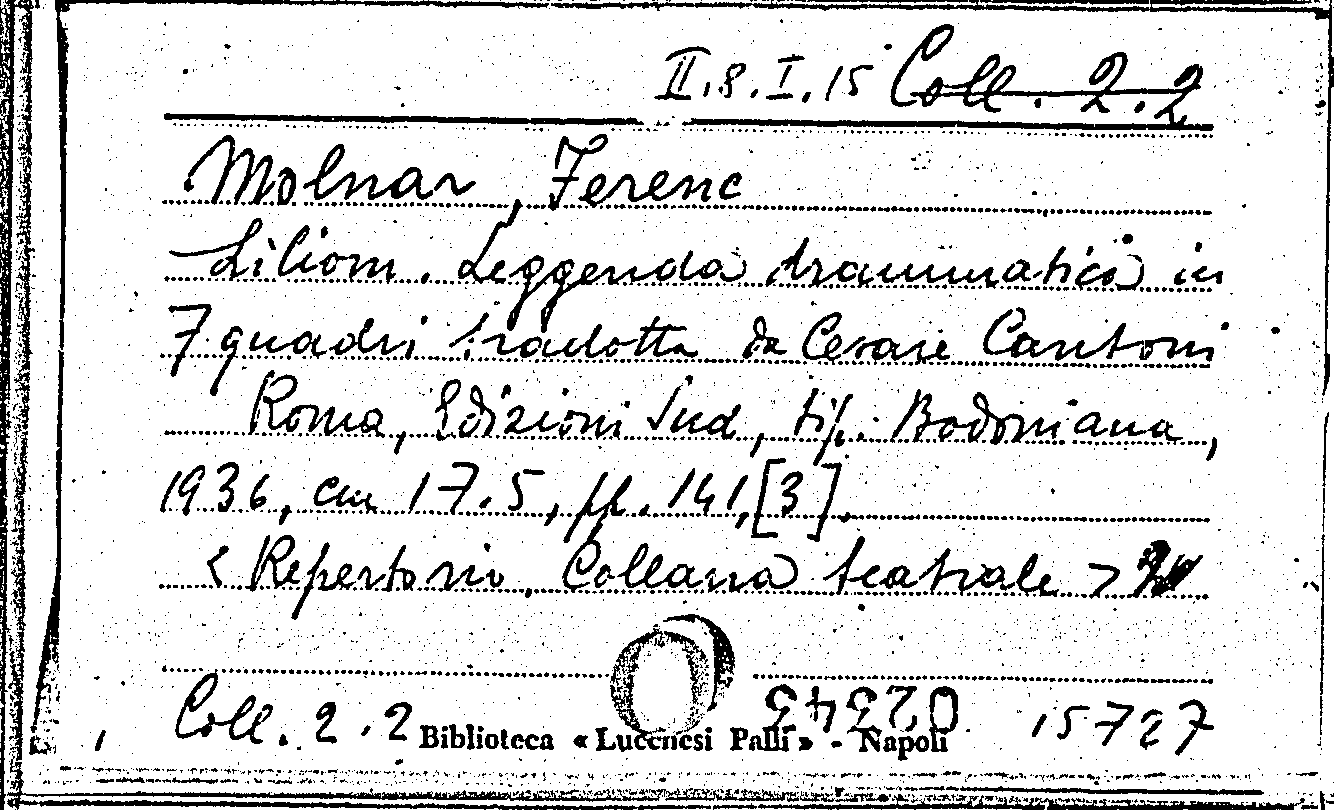 II.8.I.15 Coll. 2.2
Molnar, Ferenc
Liliom. Leggenda drammatica in
7 quadri tradotta da Cesare Cantoni
Roma, Edizioni Sud, tip. Bodoniana,
1936, cm 17.5, pp. 141,[3].
< Repertorio, Collana teatrale >
Coll. 2.2 Biblioteca « Lucchesi Palli » - Napoli 02343 15727